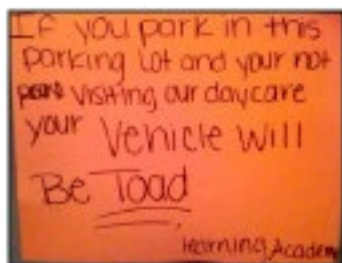 If you park in this
parking lot and your not
visiting our daycare
your Vehicle will
Be Toad
learning Academy